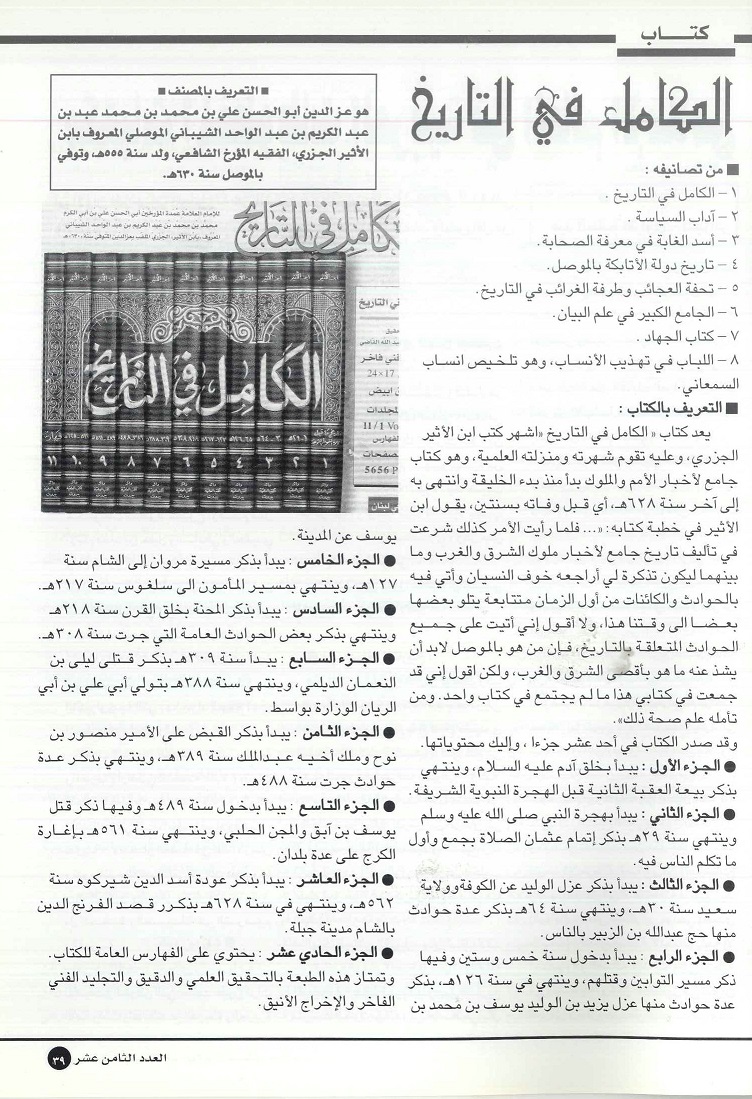 كتـــاب
الكامل في التاريخ
■ التعريف بالمصنف ■
هو عز الدين أبو الحسن علي بن محمد بن محمد عبد بن
عبد الكريم بن عبد الواحد الشيباني الموصلي المعروف بابن
الأثير الجزري، الفقيه المؤرخ الشافعي، ولد سنة ٥٥٥هـ، وتوفي
بالموصل سنة ٦٣٠هـ.
■ من تصانيفه :
١ – الكامل في التاريخ .
٢ – آداب السياسة .
٣ – أسد الغابة في معرفة الصحابة.
٤ – تاريخ دولة الأتابكة بالموصل.
٥ – تحفة العجائب وطرفة الغرائب في التاريخ.
٦ – الجامع الكبير في علم البيان.
٧ – كتاب الجهاد .
٨ – اللباب في تهذيب الأنساب، وهو تلخيص انساب
السمعاني.
■ التعريف بالكتاب :
يعد كتاب « الكامل في التاريخ «اشهر كتب ابن الأثير
الجزري، وعليه تقوم شهرته ومنزلته العلمية، وهو كتاب
جامع لأخبار الأمم والملوك بدأ منذ بدء الخليقة وانتهى به
إلى آخر سنة ٦٢٨هـ، أي قبل وفاته بسنتين، يقول ابن
الأثير في خطبة كتابه: «... فلما رأيت الأمر كذلك شرعت
في تأليف تاريخ جامع لأخبار ملوك الشرق والغرب وما
بينهما ليكون تذكرة لي أراجعه خوف النسيان وأتي فيه
بالحوادث والكائنات من أول الزمان متتابعة يتلو بعضها
بعضا الى وقتنا هذا، ولا أقول إني أتيت على جميع
الحوادث المتعلقة بالتاريخ، فإن من هو بالموصل لابد أن
يشذ عنه ما هو بأقصى الشرق والغرب، ولكن اقول إني قد
جمعت في كتابي هذا ما لم يجتمع في كتاب واحد. ومن
تأمله علم صحة ذلك».
وقد صدر الكتاب في أحد عشر جزءا ، وإليك محتوياتها.
● الجزء الأول : يبدأ بخلق آدم عليه السلام، وينتهي
بذكر بيعة العقبة الثانية قبل الهجرة النبوية الشريفة.
● الجزء الثاني : يبدأ بهجرة النبي صلى الله عليه وسلم
وينتهي سنة ٢٩هـ بذكر إتمام عثمان الصلاة بجمع وأول
ما تكلم الناس فيه.
● الجزء الثالث : يبدأ بذكر عزل الوليد عن الكوفةوولاية
سعيد سنة ٣٠هـ، وينتهي سنة ٦٤هـ بذكر عدة حوادث
منها حج عبدالله بن الزبير بالناس.
● الجزء الرابع : يبدأ بدخول سنة خمس وستين وفيها
ذكر مسير التوابين وقتلهم، وينتهي في سنة ١٢٦هـ، بذكر
عدة حوادث منها عزل يزيد بن الوليد يوسف بن محمد بن
للإمام العلامة عمدة المؤرخين أبي الحسن علي بن أبي الكرم
محمد بن محمد بن عبد الكريم بن عبد الواحد الشيباني
المعروف بابن الأثير، الجزري الملقب بعزالدين المتوفى سنة ٦٣٠هـ
الكامل في التاريخ
ني التاريخ
فني فاخر
24×17
ق ابيض
لمجلدات
11/1 Vo
الفهارس
لصفحات
5656 P
الكامل في التاريخ
١ ٢ ٣ ٤ ٥ ٦ ٧ ٨ ٩ ١٠ ١١
يوسف عن المدينة.
● الجزء الخامس : يبدأ بذكر مسيرة مروان إلى الشام سنة
١٢٧هـ، وينتهي بمسير المأمون الى سلغوس سنة ٢١٧هـ.
● الجزء السادس : يبدأ بذكر المحنة بخلق القرن سنة ٢١٨هـ
وينتهي بذكر بعض الحوادث العامة التي جرت سنة ٣٠٨هـ.
● الجزء السابع : يبدأ سنة ٣٠٩هـ بذكر قتلى ليلى بن
النعمان الديلمي، وينتهي سنة ٣٨٨هـ بتولي أبي علي بن أبي
الريان الوزارة بواسط.
● الجزء الثامن : يبدأ بذكر القبض على الأمير منصور بن
نوح وملك أخيه عبدالملك سنة ٣٨٩هـ، وينتهي بذكر عدة
حوادث جرت سنة ٤٨٨هـ.
● الجزء التاسع : يبدأ بدخول سنة ٤٨٩هـ وفيها ذكر قتل
يوسف بن آبق والمجن الحلبي، وينتهي سنة ٥٦١هـ بإغارة
الكرج على عدة بلدان.
● الجزء العاشر : يبدأ بذكر عودة أسد الدين شيركوه سنة
٥٦٢هـ، وينتهي في سنة ٦٢٨هـ بذكرر قصد الفرنج الدين
بالشام مدينة جبلة.
● الجزء الحادي عشر : يحتوي على الفهارس العامة للكتاب.
وتمتاز هذه الطبعة بالتحقيق العلمي والدقيق والتجليد الفني
الفاخر والإخراج الأنيق.
العدد الثامن عشر ٣٩